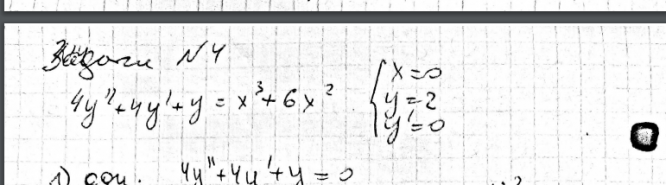 Задача №4
4y''+4y'+y = x³+6x² { x=0
y=2
y'=0
1) соп. 4y''+4y'+y = 0